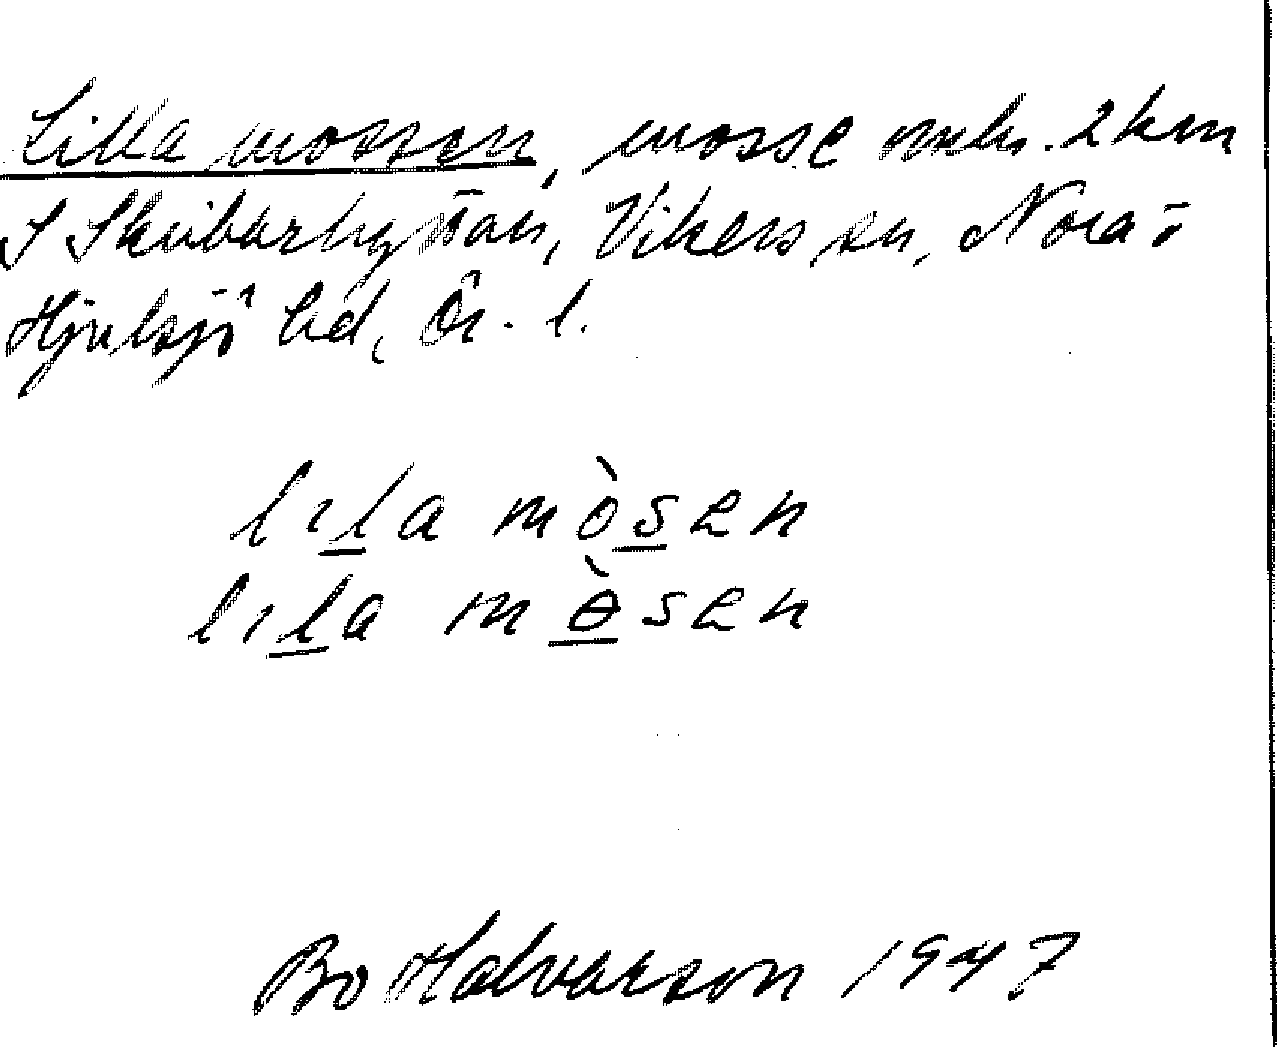 Lilla mossen, mosse omkr. 2 km
S Skrikarhyttan, Vikers sn, Nora o
Hjulsjö bd, Ör. l.
lıla mòsen
lıla mɵ̀sen
Bo Halvarson 1947